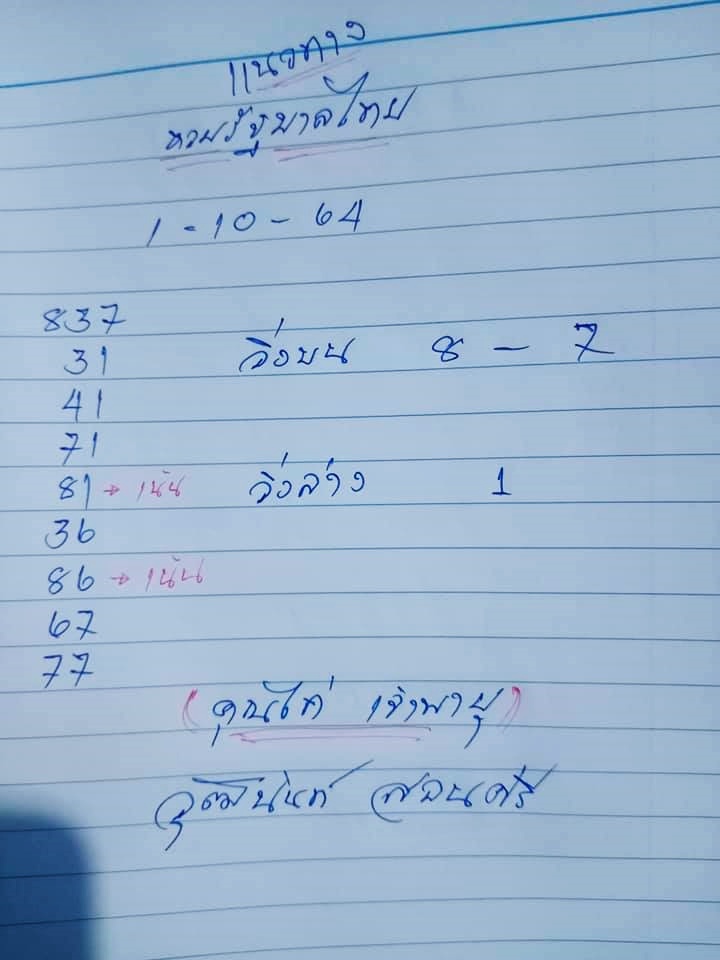 แนวทาง
หวยรัฐบาลไทย
1 - 10 - 64
837
31 วิ่งบน 8 - 7
41
71
81 → เน้น วิ่งล่าง 1
36
86 → เน้น
67
77
(คุณไก่ เจ้าพายุ)